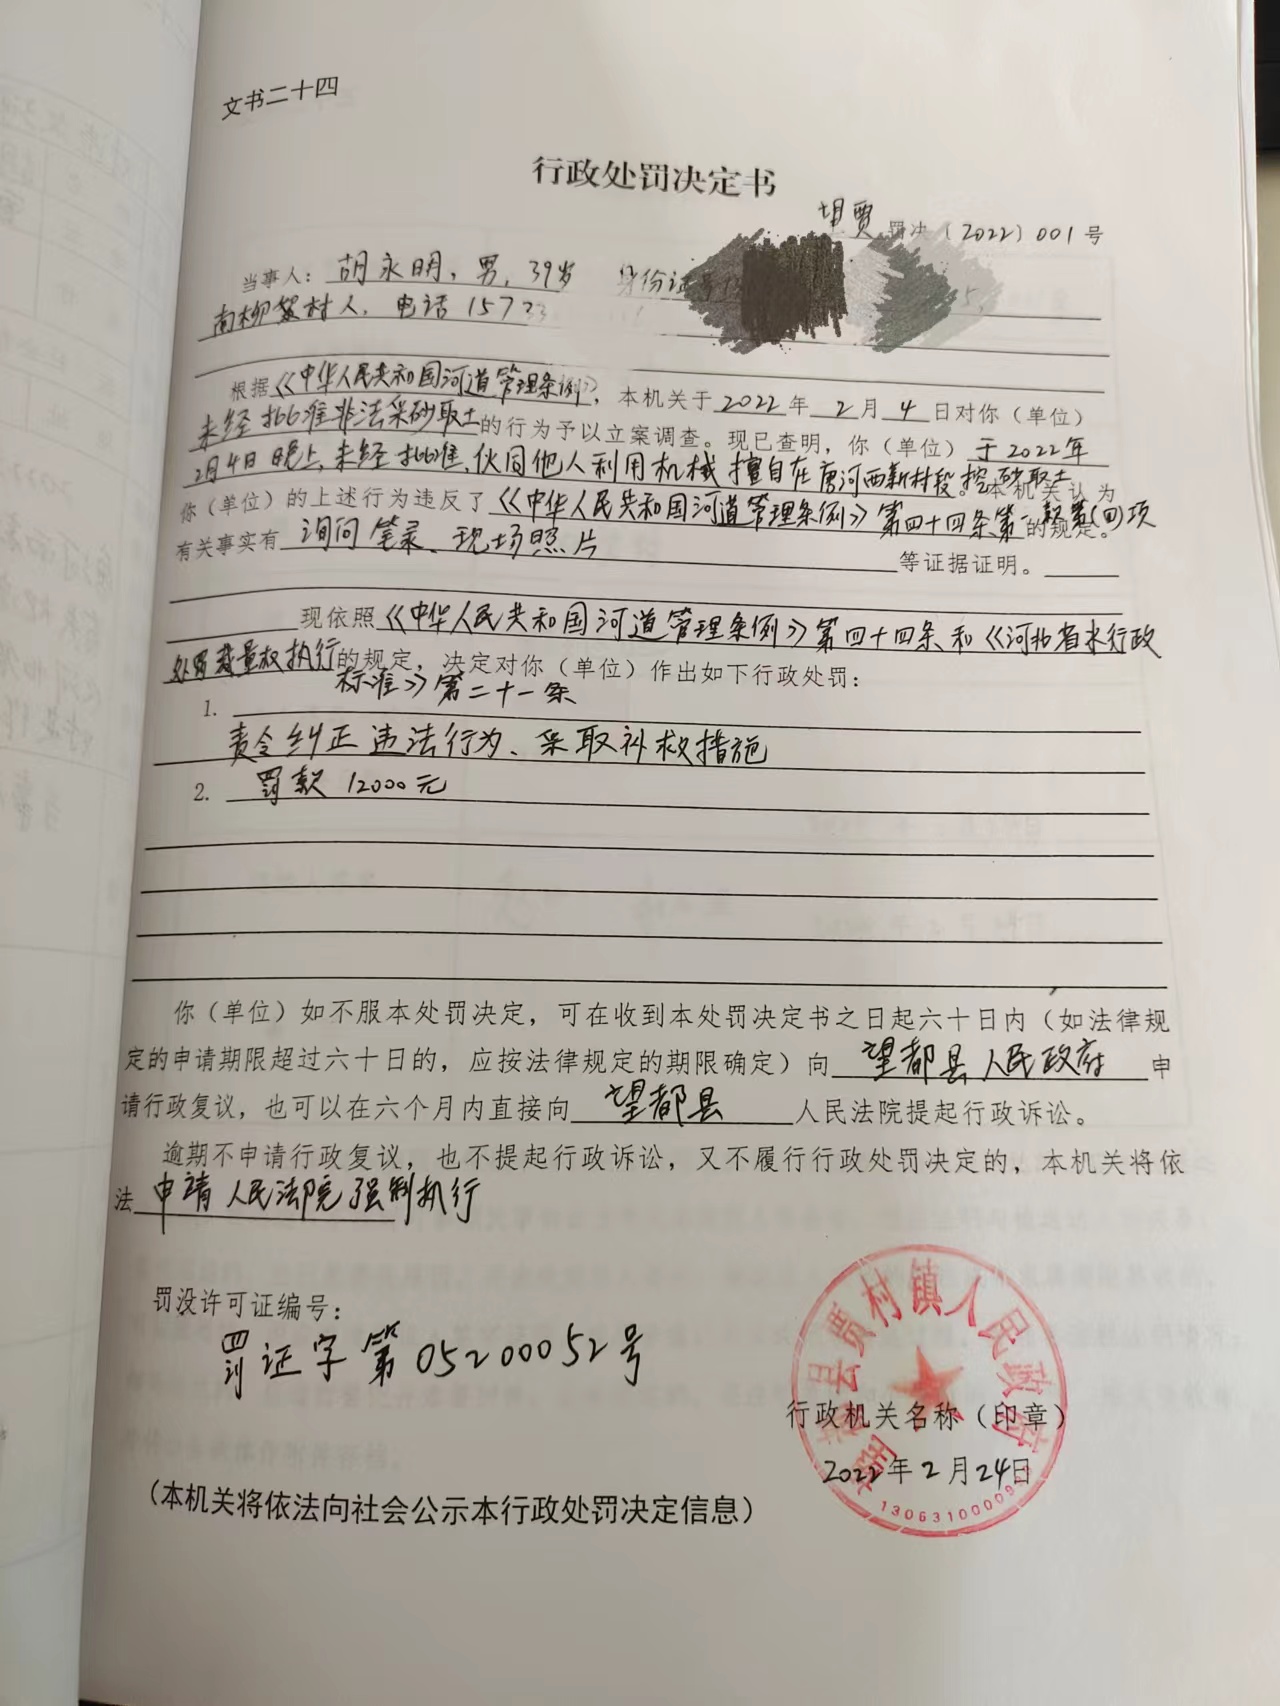 文书二十四
行政处罚决定书
望贾 罚决〔2022〕001号
当事人：胡永明，男，39岁 身份证号
南柳絮村人，电话 1573
根据《中华人民共和国河道管理条例》，本机关于2022年2月4日对你（单位）
未经批准非法采砂取土的行为予以立案调查。现已查明，你（单位）于2022年
2月4日晚上，未经批准，伙同他人利用机械擅自在唐河西新村段挖砂取土。本机关认为
你（单位）的上述行为违反了《中华人民共和国河道管理条例》第四十四条第一款第(四)项的规定。
有关事实有询问笔录、现场照片等证据证明。
现依照《中华人民共和国河道管理条例》第四十四条和《河北省水行政
处罚裁量权执行标准》第二十一条的规定，决定对你（单位）作出如下行政处罚：
1.
责令纠正违法行为、采取补救措施
2. 罚款 12000元
你（单位）如不服本处罚决定，可在收到本处罚决定书之日起六十日内（如法律规
定的申请期限超过六十日的，应按法律规定的期限确定）向望都县人民政府申
请行政复议，也可以在六个月内直接向望都县人民法院提起行政诉讼。
逾期不申请行政复议，也不提起行政诉讼，又不履行行政处罚决定的，本机关将依
法申请人民法院强制执行
罚没许可证编号：
罚证字第05200052号
望都县贾村镇人民政府
行政机关名称（印章）
2022年2月24日
（本机关将依法向社会公示本行政处罚决定信息）